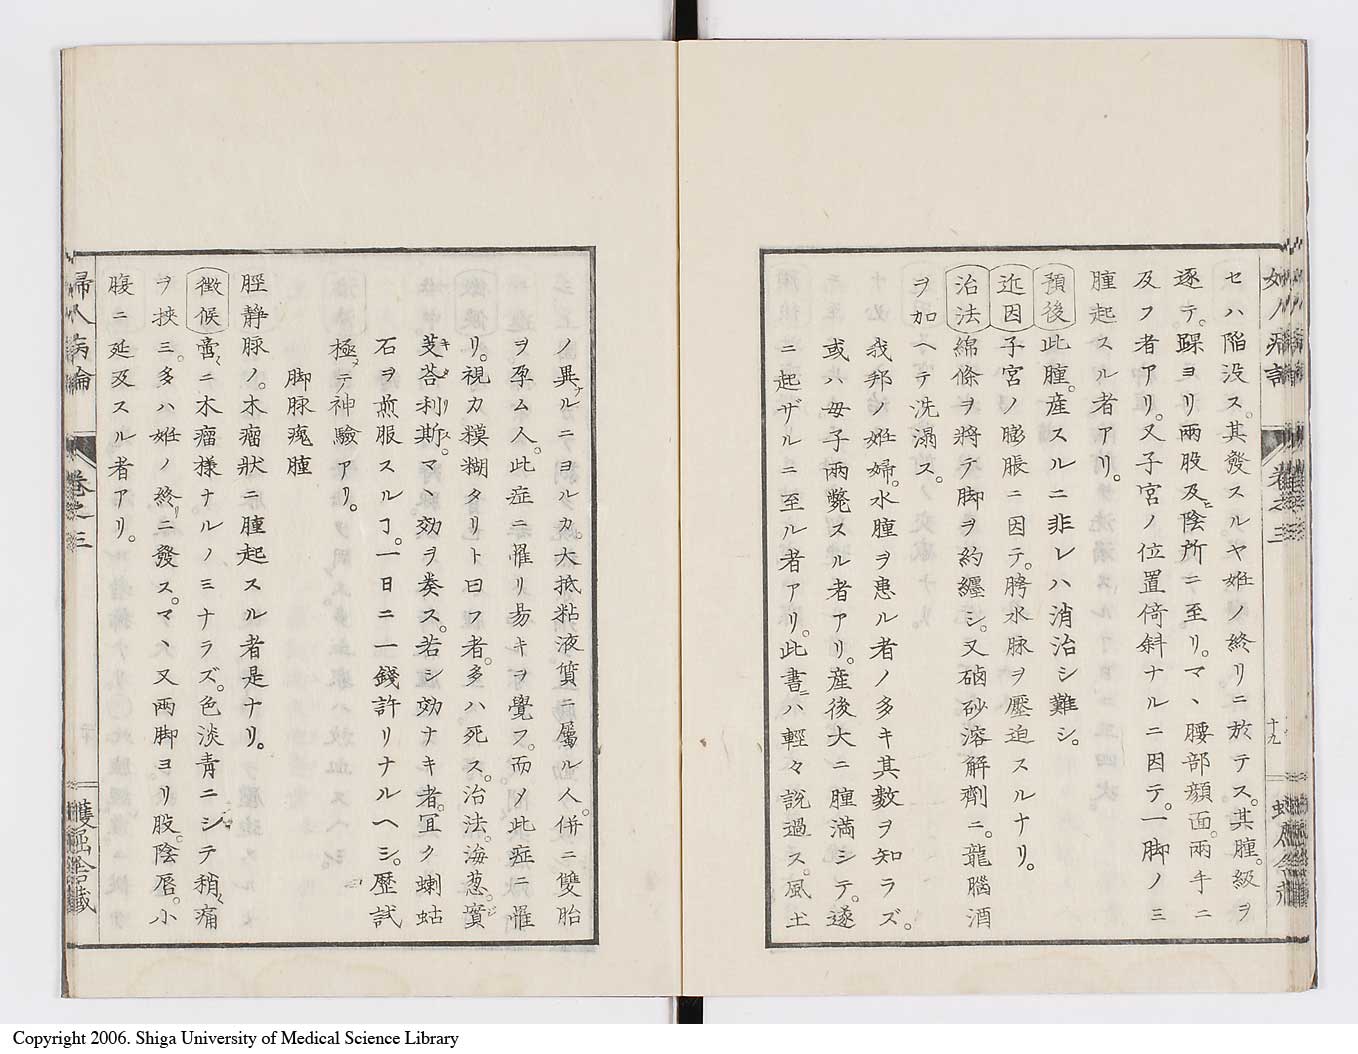 セハ陷没ス。其發スルヤ姙ノ終リニ於テス。其腫。級ヲ
逐テ。踝ヨリ兩股及ヒ陰所ニ至リ。マヽ腰部顔面。兩手ニ
及フ者アリ。又子宮ノ位置倚斜ナルニ因テ。一脚ノミ
腫起スル者アリ。
預後此腫。産スルニ非レハ消治シ難シ。
近因子宮ノ膨脹ニ因テ。膀水脉ヲ壓迫スルナリ。
治法綿條ヲ將テ脚ヲ約纏シ。又硇砂溶解劑ニ。龍腦酒
ヲ加ヘテ洗溻ス。
我邦ノ姙婦。水腫ヲ患ル者ノ多キ其數ヲ知ラズ。
或ハ母子兩斃スル者アリ。産後大ニ腫満シテ。遂
ニ起ザルニ至ル者アリ。此書ニハ輕々説過ス。風土
十九
ノ異ナルニヨルカ。大抵粘液質ニ屬ル人。併ニ雙胎
ヲ孕ム人。此症ニ罹リ易キヲ覺フ。而〆此症ニ罹
リ。視力糢糊タリト曰フ者。多ハ死ス。治法。海葱。實
芰荅利斯。マヽ効ヲ奏ス。若シ効ナキ者。冝ク蝲蛄
石ヲ煎服スルヿ。一日ニ一錢許リナルヘシ。歴試
極テ神驗アリ。
脚脉瘣腫
脛静脉ノ。木瘤狀ニ腫起スル者是ナリ。
徴候啻ニ木瘤様ナルノミナラズ。色淡青ニシテ稍痛
ヲ挾ミ。多ハ姙ノ終ニ發ス。マヽ又兩脚ヨリ股。陰唇。小
腹ニ延及スル者アリ。
婦人病論
卷之三
蠖屈舎藏
Copyright 2006. Shiga University of Medical Science Library